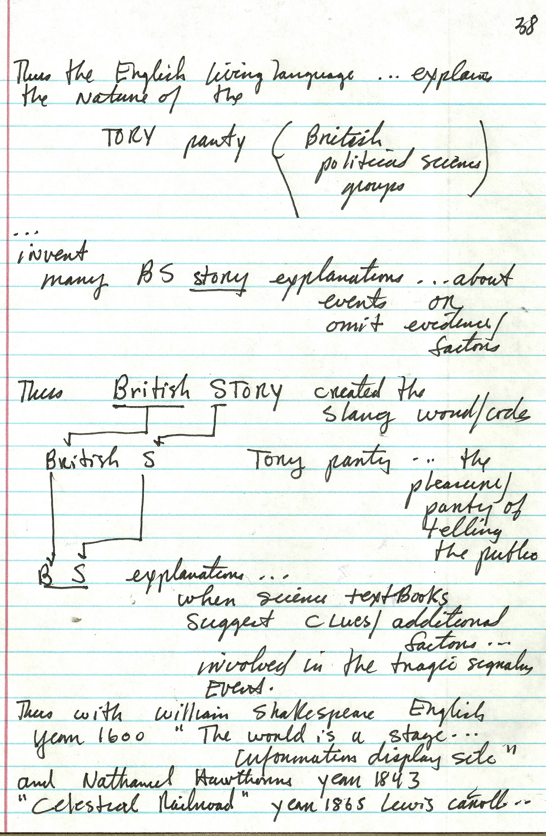 38
Thus the English living language ... explains
the Nature of the
TORY party ( British
political science
groups )
...
invent
many BS story explanations ... about
events or
omit evidence/
factors
Thus British STORY created the
slang word/code
British S Tory party ... the
pleasure/
party of
telling
the public
B S explanations ...
when science textBooks
suggest clues/additional
factors ...
involved in the tragic signalus
Event.
Thus with william Shakespeare English
year 1600 " The world is a stage ...
Information display site "
and Nathaniel Hawthorns year 1843
"Celestial Railroad" year 1865 Lewis carroll ..